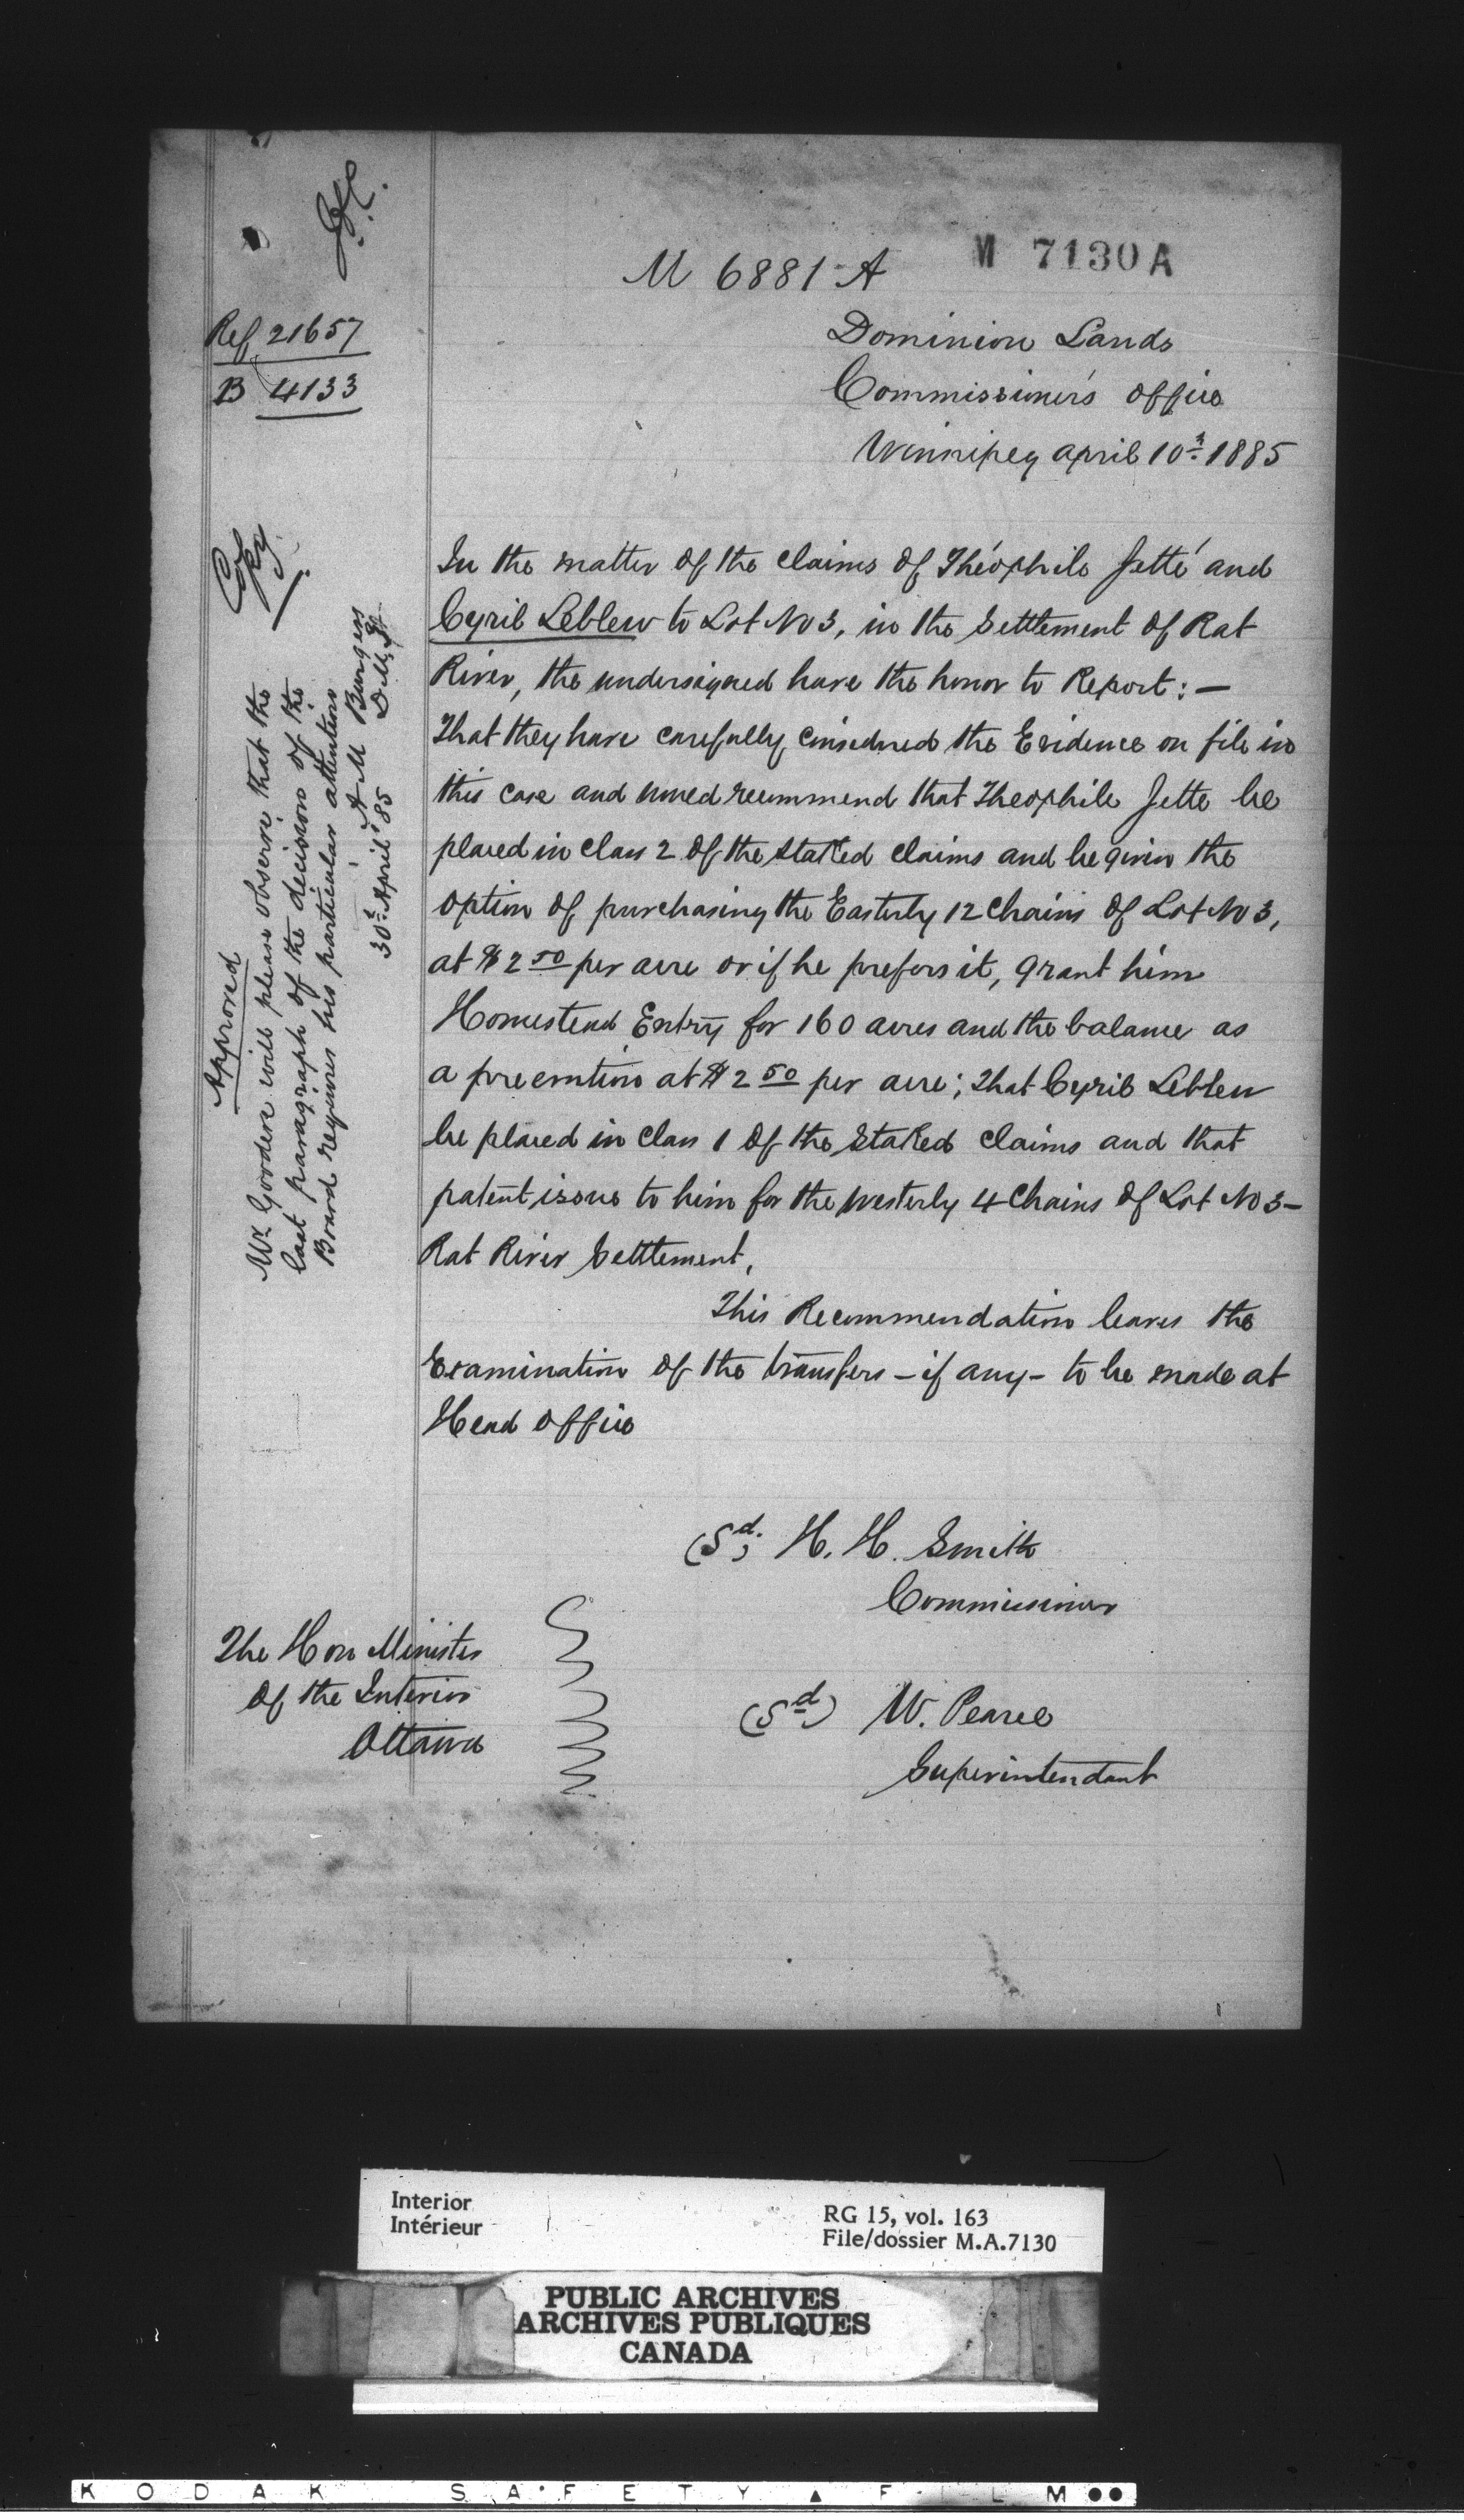 M 6881 A
M 7130 A
Ref 21657
B 4133
Dominion Lands
Commissioner's Office
Winnipeg April 10th 1885
Copy
In the matter of the claims of Théophile Jetté and
Cyril Leblew to Lot No 3, in the Settlement of Rat
River, the undersigned have the honor to Report: —
That they have carefully considered the Evidence on file in
this case and would recommend that Theophile Jette be
placed in class 2 of the Staked claims and be given the
option of purchasing the Easterly 12 Chains of Lot No 3,
at $2 50 per acre or if he prefers it, grant him
Homestead Entry for 160 acres and the balance as
a preemtion at $2 50 per acre; That Cyril Leblew
be placed in class 1 of the Staked claims and that
patent issue to him for the Westerly 4 Chains of Lot No 3 —
Rat River Settlement.
This Recommendation leaves the
Examination of the transfers — if any — to be made at
Head Office
(Sd.) H. H. Smith
Commissioner
(Sd) W. Pearce
Superintendant
The Hon Minister
of the Interior
Ottawa
Approved
Mr Goodere will please observe that the
last paragraph of the decision of the
Board requires his particular attention
A M Burgess
30th April '85 D. M. I.
Interior
Intérieur
RG 15, vol. 163
File/dossier M.A.7130
PUBLIC ARCHIVES
ARCHIVES PUBLIQUES
CANADA
KODAK SAFETY FILM